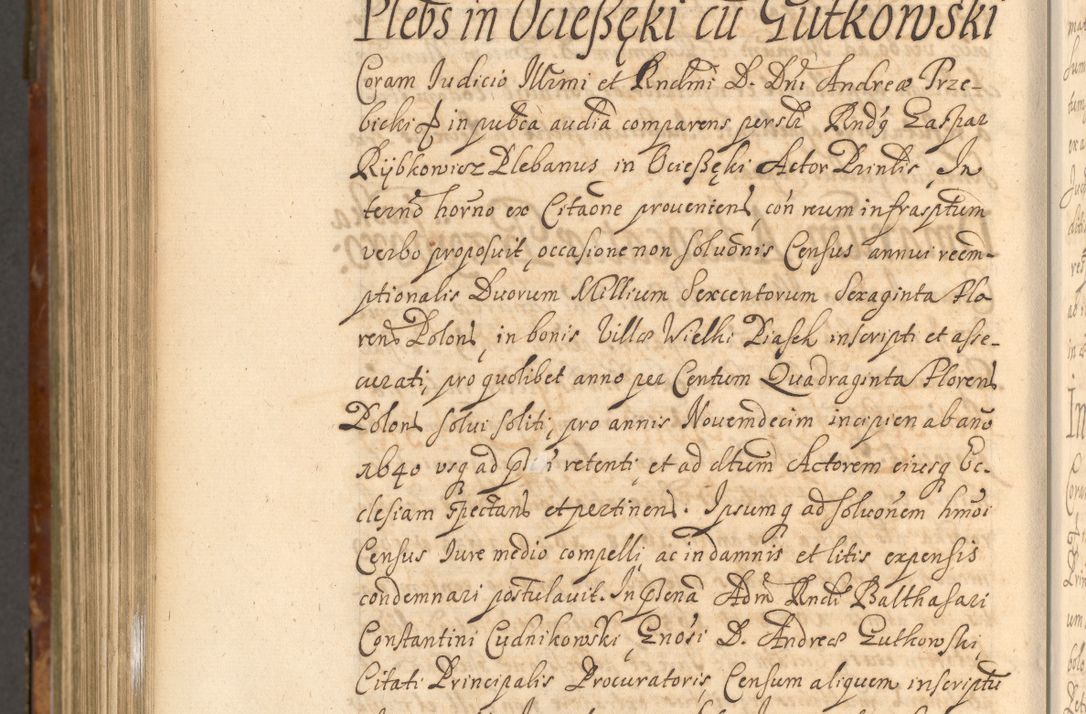 Plebs in Ocießęki cū Gutkowski
Coram Iudicio Illrmi et Rndmi D. Dni Andreæ Trze-
bicki in publca audia comparens persltr Rndg Gaspar
Rÿbkowicz Plebanus in Ocießęki Actor Prinlis, In
termō horno ex Citaone proueniens, con reum infrasptum
verbo proposuit, occasione non soluonis Census annui reem-
ptionalis Duorum Millium Sexcentorum Sexaginta Flo
reno Polons, in bonis Villæ Wielki Piasek inscripti et asse-
curati, pro quolibet anno per Centum Quadraginta Florens
Polons solui soliti, pro annis Nouemdecim incipien ab anō
1640 vsq ad retenti, et ad dtum Actorem eiusq Ec-
clesiam spectans et pertinens. Ipsumq ad soluonem hmōi
Census Iure medio compelli, ac in damnis et litis expensis
condemnari postulauit. In plena Adm Rndi Balthasari
Constantini Cudnikowski, Gnosi D. Andreæ Gutkowski,
Citati Principalis Procuratoris, Censum aliquem inscriptu